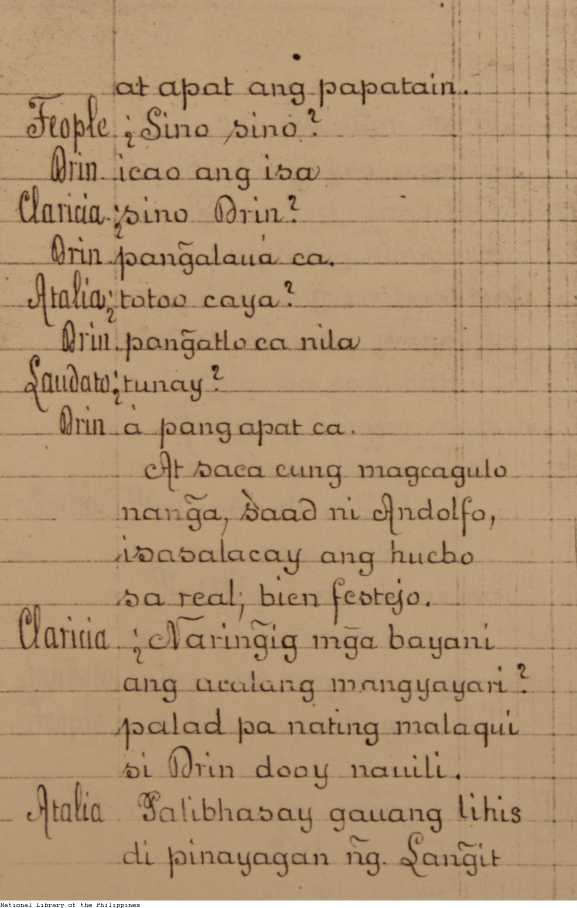 at apat ang papatain.
Feople ¿Sino sino?
Brin icao ang isa
Claricia ¿sino Brin?
Brin pang̃alauá ca.
Atalia ¿totoo caya?
Brin. pang̃atlo ca nila
Laudato ¿tunay?
Brin á pang apat ca.
At saca cung magcagulo
nang̃a, saad ni Andolfo,
isasalacay ang hucbo
sa real; bien festejo.
Claricia ¿Naring̃ig mg̃a bayani
ang acalang mangyayari?
palad pa nating malaqui
si Brin dooy nauili.
Atalia Palibhasay gauang lihis
di pinayagan ng̃. Lang̃it
National Library of the Philippines